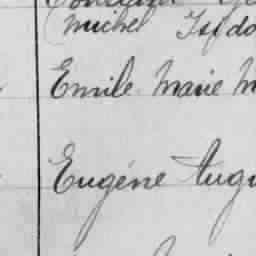 Michel Isido
Emile Marie M
Eugéne Augu